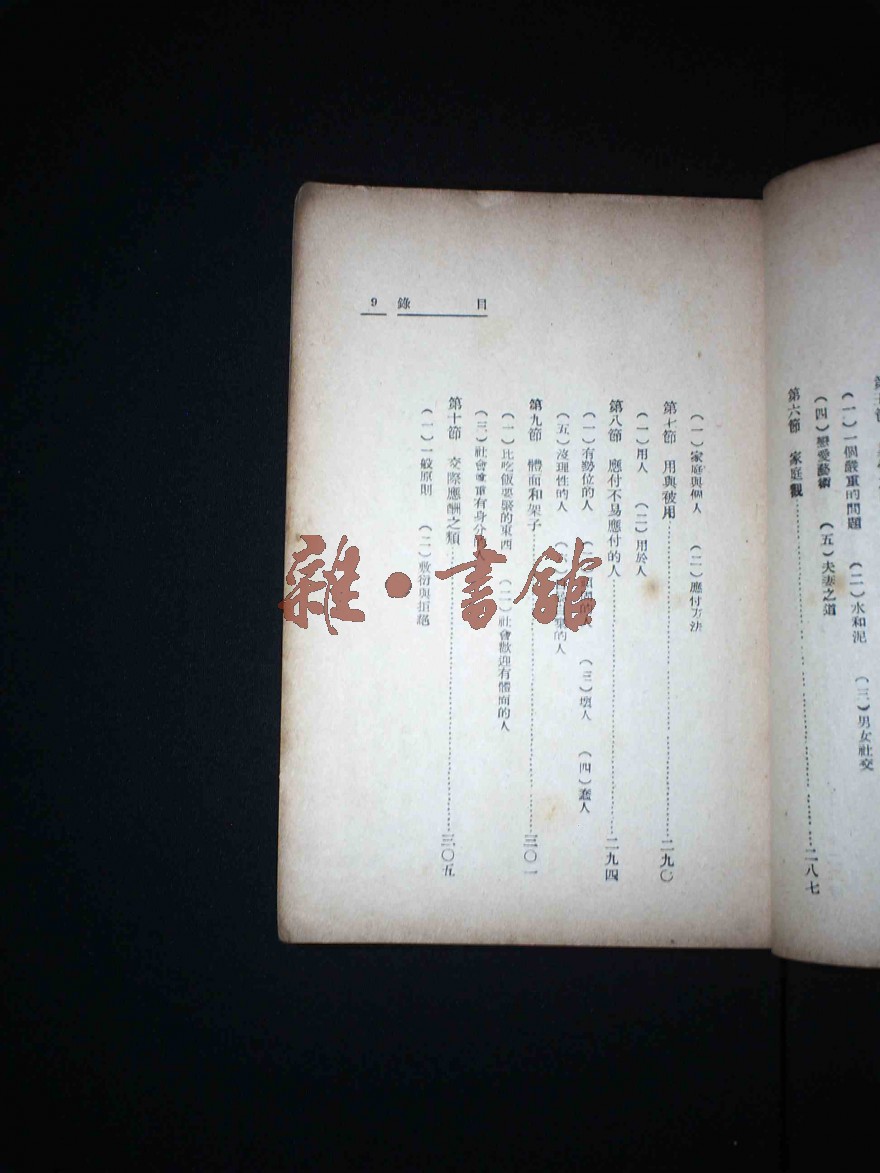 (一)一個嚴重的問題　(二)水和泥　(三)男女社交
(四)戀愛藝術　(五)夫妻之道
第六節　家庭觀……二八七
目錄　9
(一)家庭與個人　(二)應付方法
第七節　用與被用……二九〇
(一)用人　(二)用於人
第八節　應付不易應付的人……二九四
(一)有勢位的人　(三)壞人　(四)蠢人
(五)沒理性的人　的人
第九節　體面和架子……三〇一
(一)比吃飯要緊的東西　(二)社會歡迎有體面的人
(三)社會尊重有身分的人
第十節　交際應酬之類……三〇五
(一)一般原則　(二)敷衍與拒絕
雜·書館